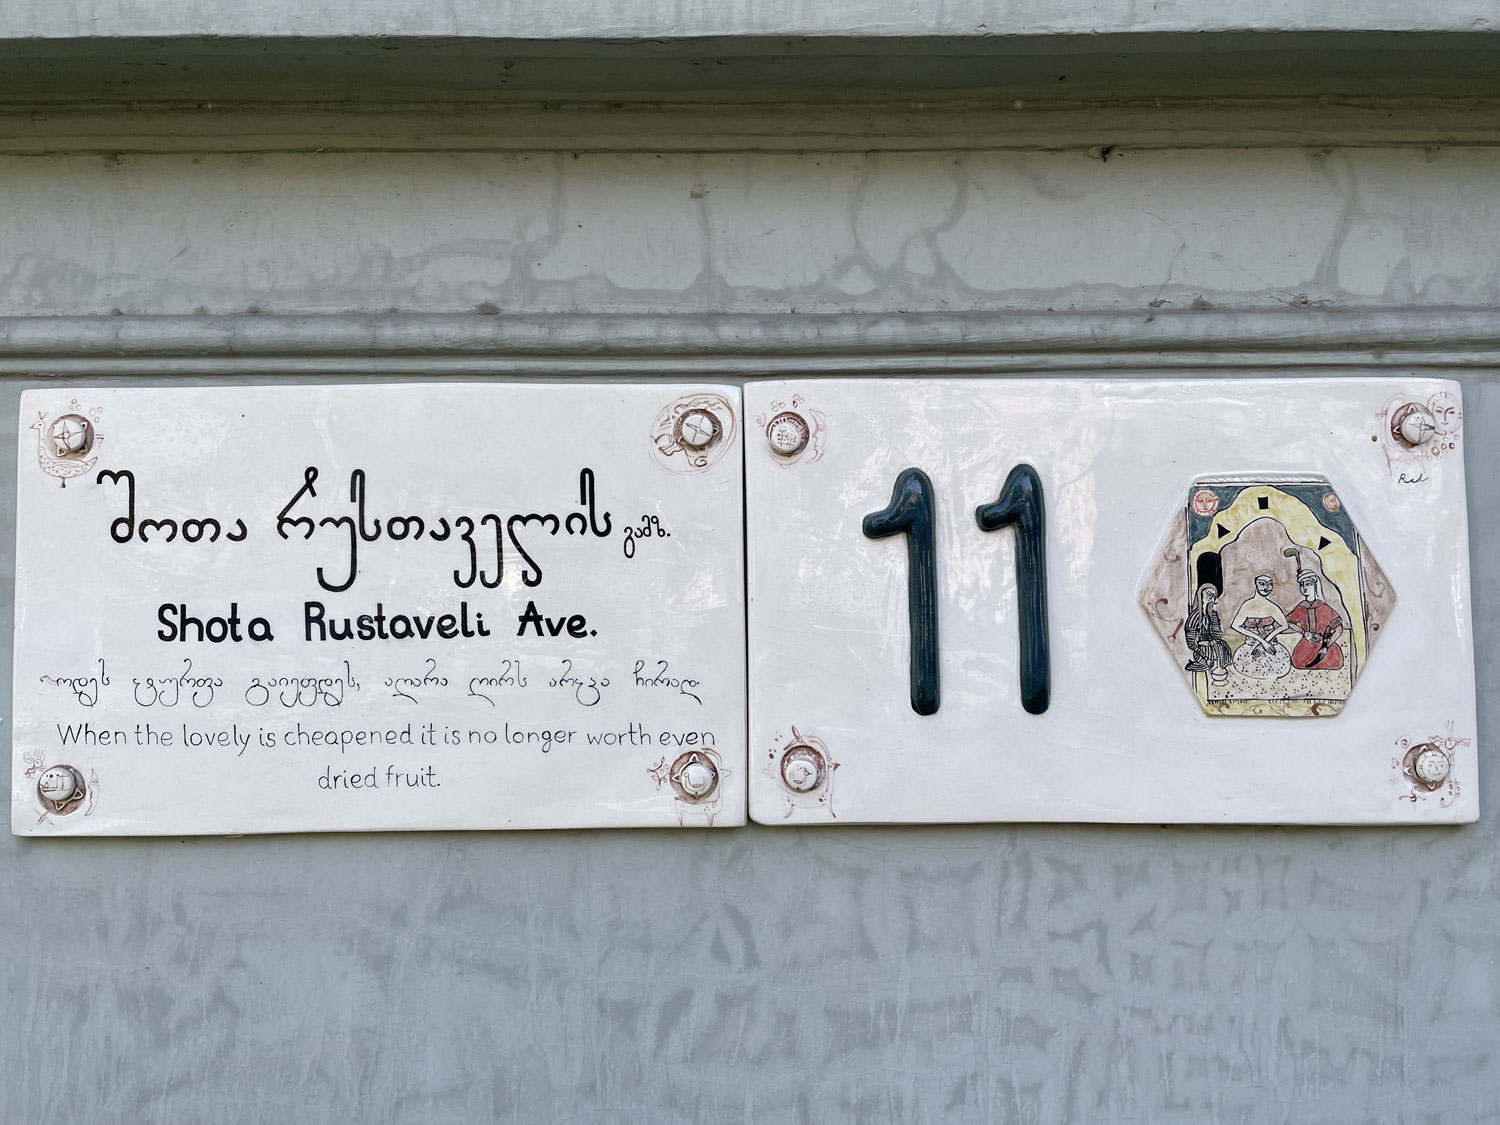 შოთა რუსთაველის გამზ.
Shota Rustaveli Ave.
ოდეს ტურფა გაიეფდეს, აღარა ღირს არცა ჩირად.
When the lovely is cheapened it is no longer worth even
dried fruit.
11